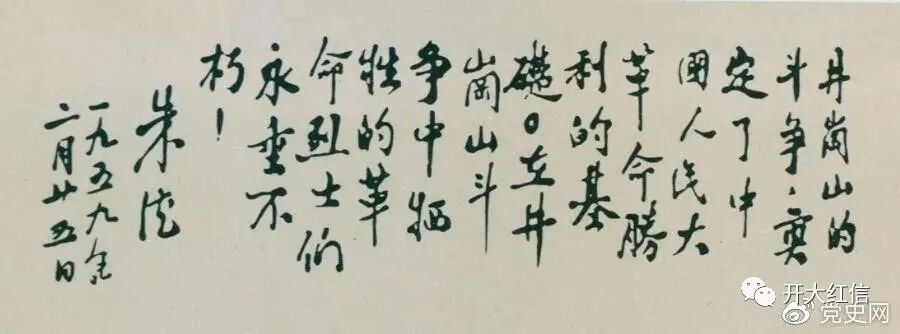 井崗山的
斗争，奠
定了中
國人民大
革命勝
利的基
礎。在井
崗山斗
争中牺
牲的革
命烈士们
永垂不
朽！
朱德
一九五九年
二月廿五日
开大红信
党史网